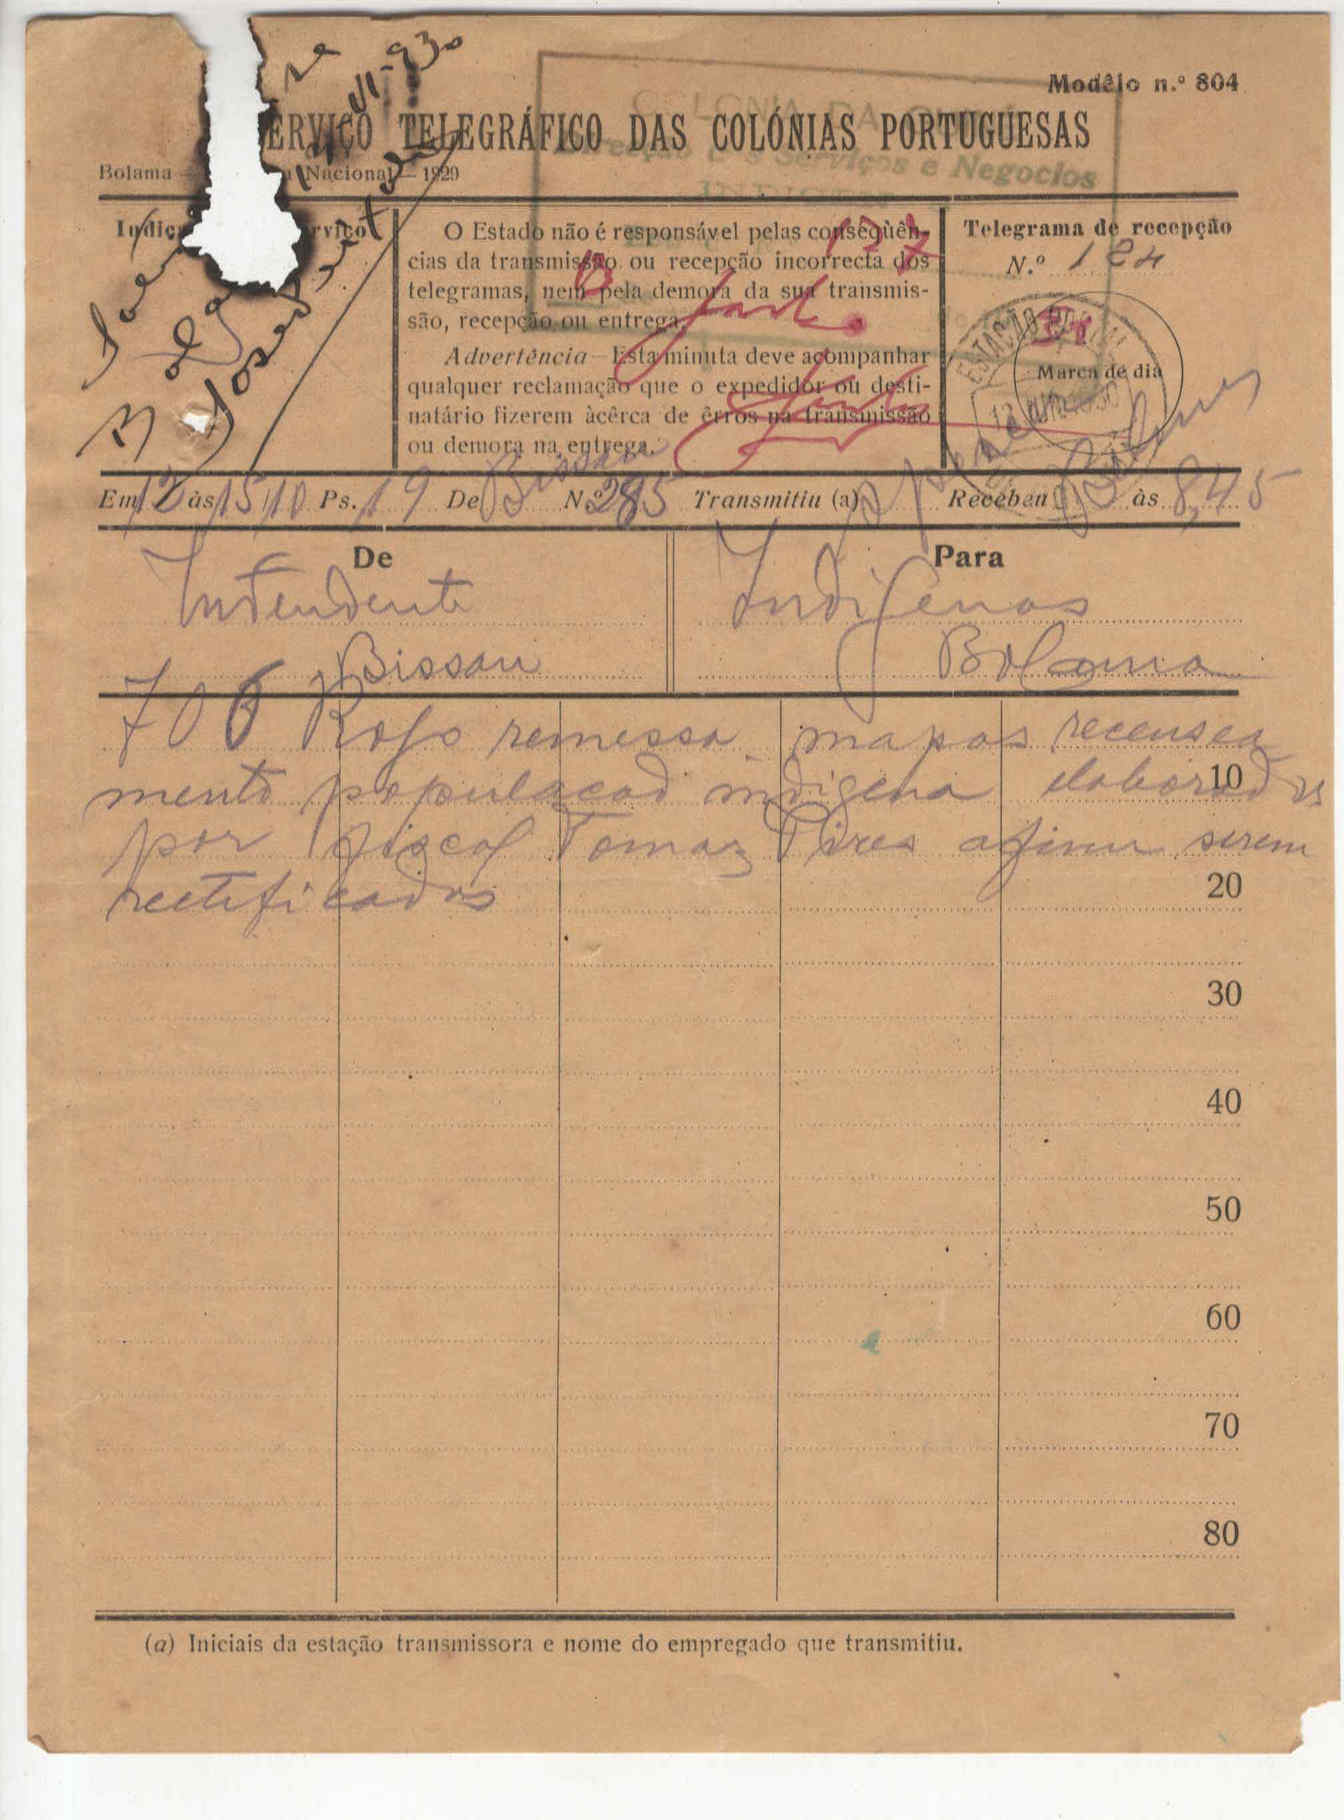 Modêlo n.º 804
COLONIA DA
ERVIÇO TELEGRÁFICO DAS COLÓNIAS PORTUGUESAS
Direcção dos Serviços e Negocios
Bolama — Nacional — 1929
O Estado não é responsável pelas conseqüên-
cias da transmissão ou recepção incorrecta dos
telegramas, nem pela demora da sua transmis-
são, recepção ou entrega.
Advertência — Esta minuta deve acompanhar
qualquer reclamação que o expedidor ou desti-
natário fizerem àcêrca de êrros na transmissão
ou demora na entrega.
Telegrama de recepção
N.º 124
Marca de dia
Em 12 às 15/10 Ps. 19 De Bissau N.º 285 Transmitiu (a) Recebeu às 8,45
De
Intendente
Bissau
Para
Indigenas
Bolama
706 Rogo remessa mapas recensea
mento populacao indigena elaborados
10
por fiscal Tomaz Pires afim serem
rectificados
20
30
40
50
60
70
80
(a) Iniciais da estação transmissora e nome do empregado que transmitiu.